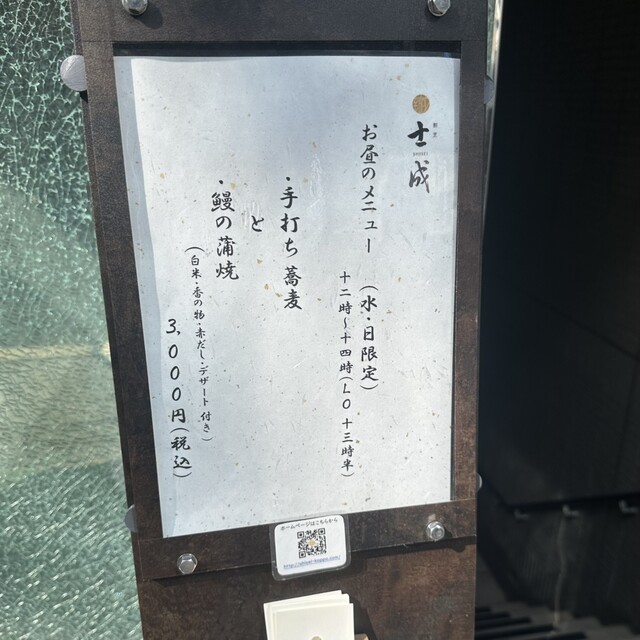 士成
お昼のメニュー (水・日限定)
十二時〜十四時(LO 十三時半)
・手打ち蕎麦
と
・鰻の蒲焼
(白米・香の物・赤だし・デザート付き)
3,000円(税込)
ホームページはこちらから